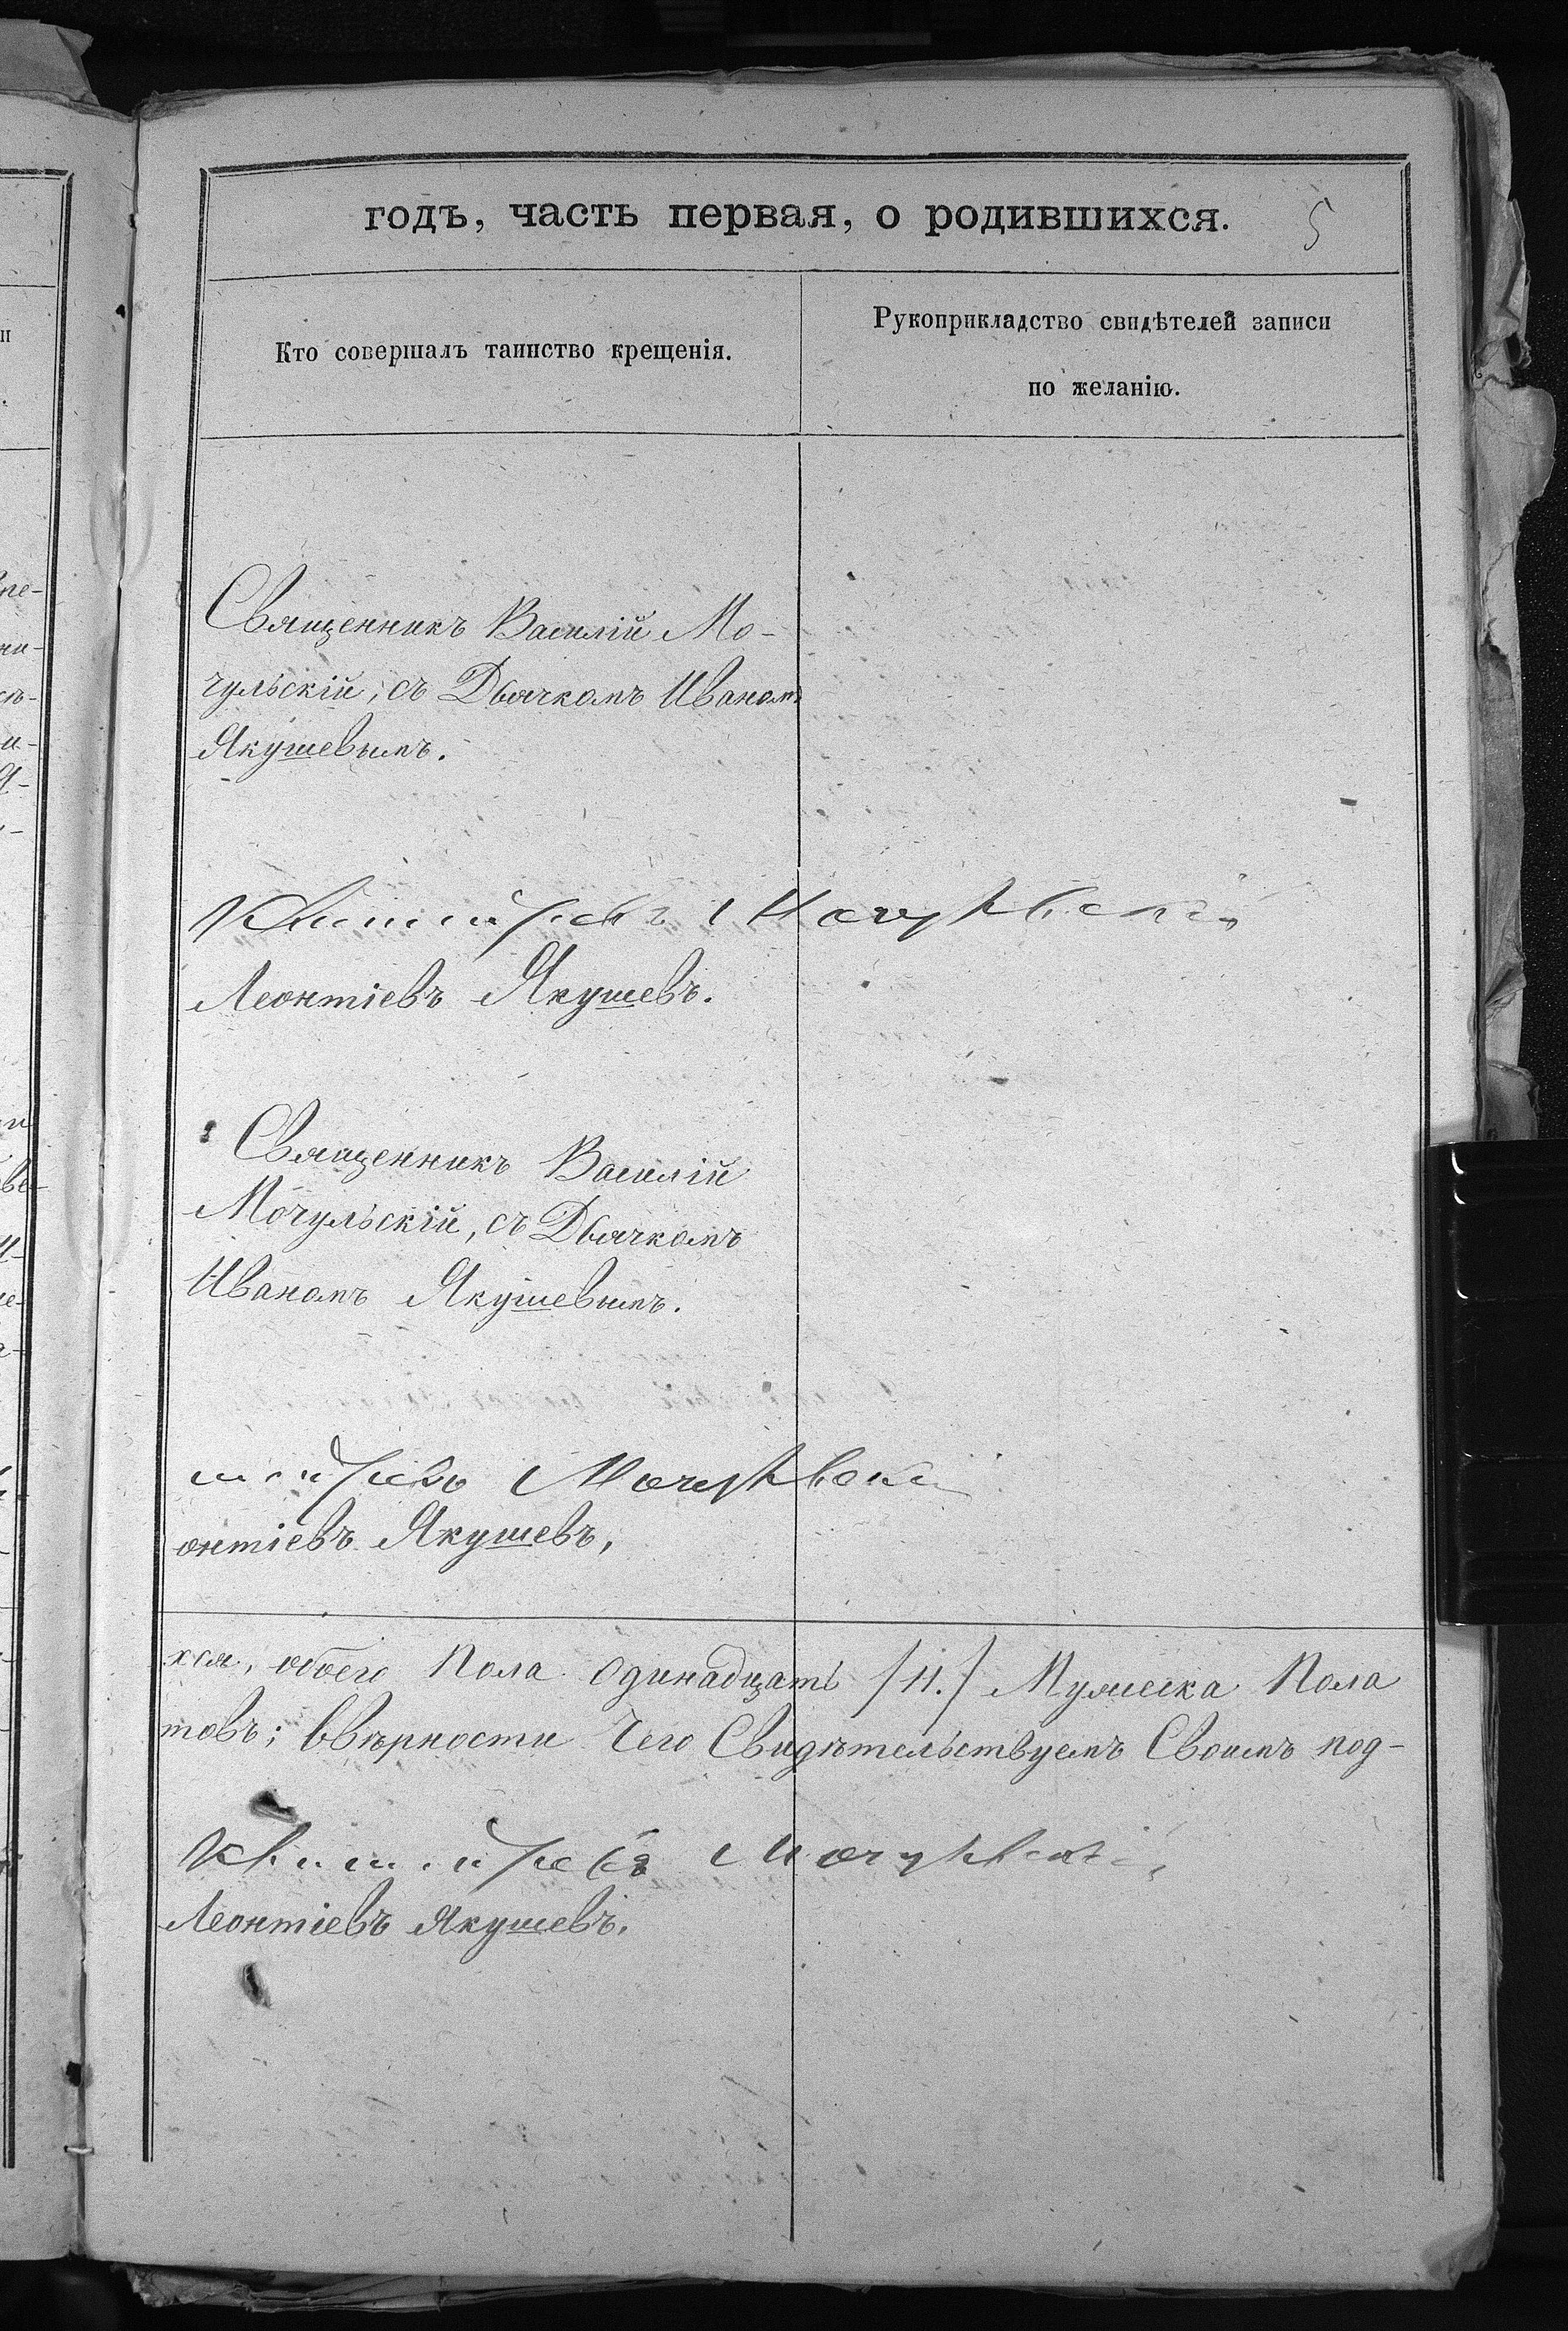 годъ, часть первая, о родившихся. 5
Кто совершалъ таинство крещенія.
Рукоприкладство свидѣтелей записи
по желанію.
Священникъ Василій Мо-
чульскій, съ Дьячкомъ Иваномъ
Якушевымъ.
Мочульскій
Леонтіевъ Якушевъ.
Священникъ Василій
Мочульскій, съ Дьячкомъ
Иваномъ Якушевымъ.
Мочульскій
онтіевъ Якушевъ,
хся, обоего Пола одинадцать /11./ Мужеска Пола
товъ; Ввѣрности Чего Свидѣтельствуемъ Своимъ под-
Мочульскій
Леонтіевъ Якушевъ.